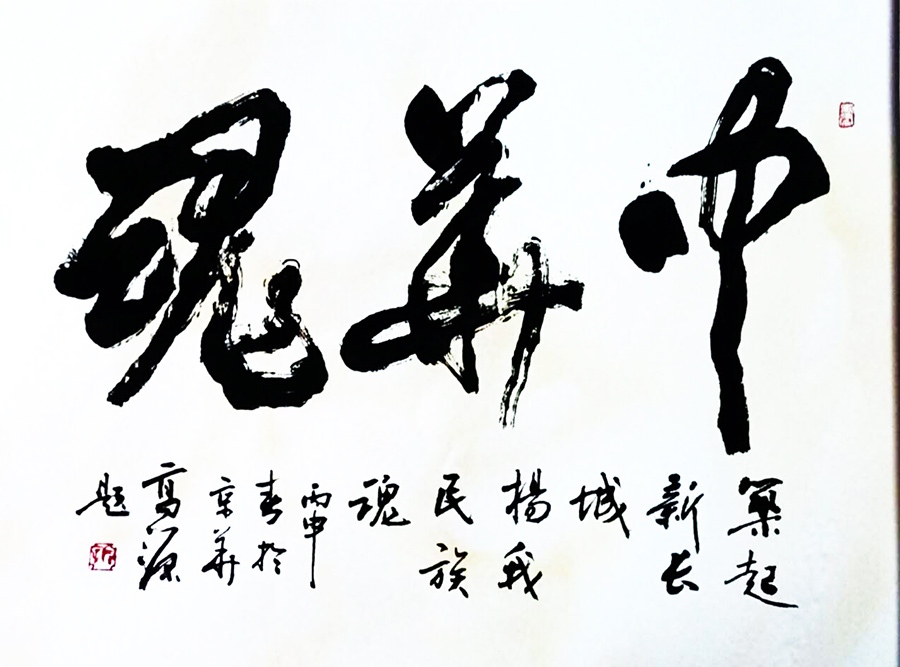 中華魂
築起
新长
城
揚我
民族
魂
丙申
春於
京華
高源
题